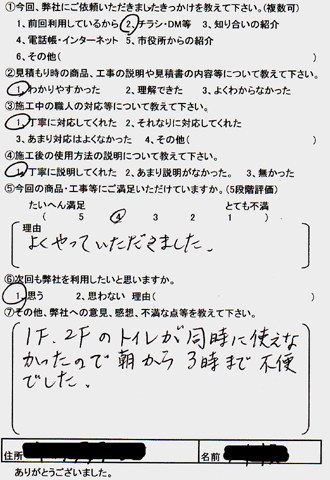 ①今回、弊社にご依頼いただきましたきっかけを教えて下さい。(複数可)
1、前回利用しているから 2、チラシ・DM等 3、知り合いの紹介
4、電話帳・インターネット 5、市役所からの紹介
6、その他(            )
②見積もり時の商品、工事の説明や見積書の内容等について教えて下さい。
1、わかりやすかった 2、理解できた 3、よくわからなかった
③施工中の職人の対応等について教えて下さい。
1、丁寧に対応してくれた 2、それなりに対応してくれた
3、あまり対応はよくなかった 4、その他(            )
④施工後の使用方法の説明について教えて下さい。
1、丁寧に説明してくれた 2、あまり説明がなかった。 3、無かった
⑤今回の商品・工事等にご満足いただけていますか。(5段階評価)
たいへん満足 とても不満
( 5 4 3 2 1 )
理由
よくやっていただきました。
⑥次回も弊社を利用したいと思いますか。
1、思う 2、思わない 理由(            )
⑦その他、弊社への意見、感想、不満な点等を教えて下さい。
1F、2Fのトイレが同時に使えな
かったので朝から3時まで不便
でした。
住所 名前
ありがとうございました。